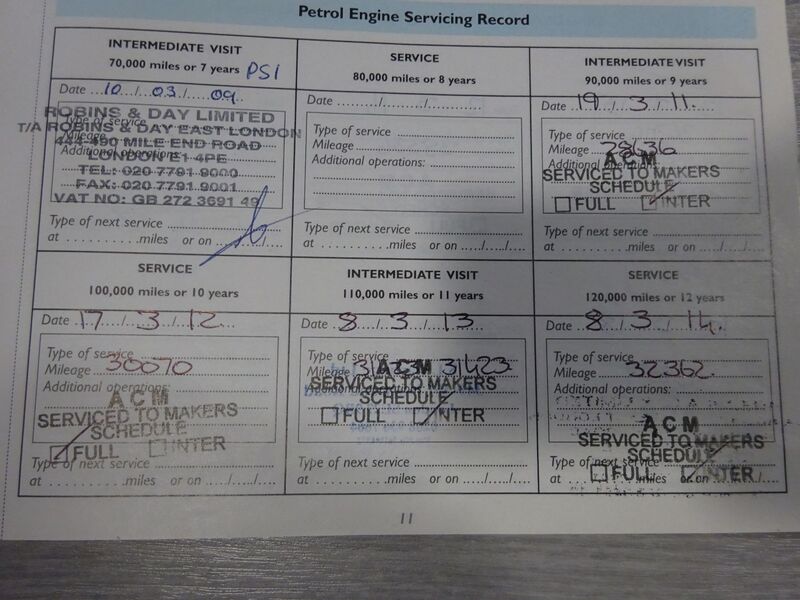 Petrol Engine Servicing Record
INTERMEDIATE VISIT
70,000 miles or 7 years PSI
Date 10/03/09
Type of service
Mileage
Additional operations:
ROBINS & DAY LIMITED
T/A ROBINS & DAY EAST LONDON
444-490 MILE END ROAD
LONDON E1 4PE
TEL: 020 7791 9000
FAX: 020 7791 9001
VAT NO: GB 272 3691 49
Type of next service
at .......... miles or on ...../...../.....
SERVICE
80,000 miles or 8 years
Date ...../...../.....
Type of service
Mileage
Additional operations:
Type of next service
at .......... miles or on ...../...../.....
INTERMEDIATE VISIT
90,000 miles or 9 years
Date 19/3/11.
Type of service
Mileage 28636
Additional operations:
ACM
SERVICED TO MAKERS
SCHEDULE
FULL INTER
Type of next service
at .......... miles or on ...../...../.....
SERVICE
100,000 miles or 10 years
Date 17/3/12
Type of service
Mileage 30070
Additional operations:
ACM
SERVICED TO MAKERS
SCHEDULE
FULL INTER
Type of next service
at .......... miles or on ...../...../.....
INTERMEDIATE VISIT
110,000 miles or 11 years
Date 8/3/13
Type of service
Mileage 31423
Additional operations:
ACM
SERVICED TO MAKERS
SCHEDULE
FULL INTER
Type of next service
at .......... miles or on ...../...../.....
SERVICE
120,000 miles or 12 years
Date 8/3/14.
Type of service
Mileage 32362
Additional operations:
ACM
SERVICED TO MAKERS
SCHEDULE
FULL INTER
Type of next service
at .......... miles or on
11